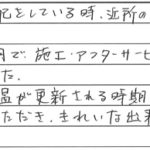 化をしている時、近所の
円で施工・アフターサービ
た。
温が更新される時期
ただき、きれいな出来